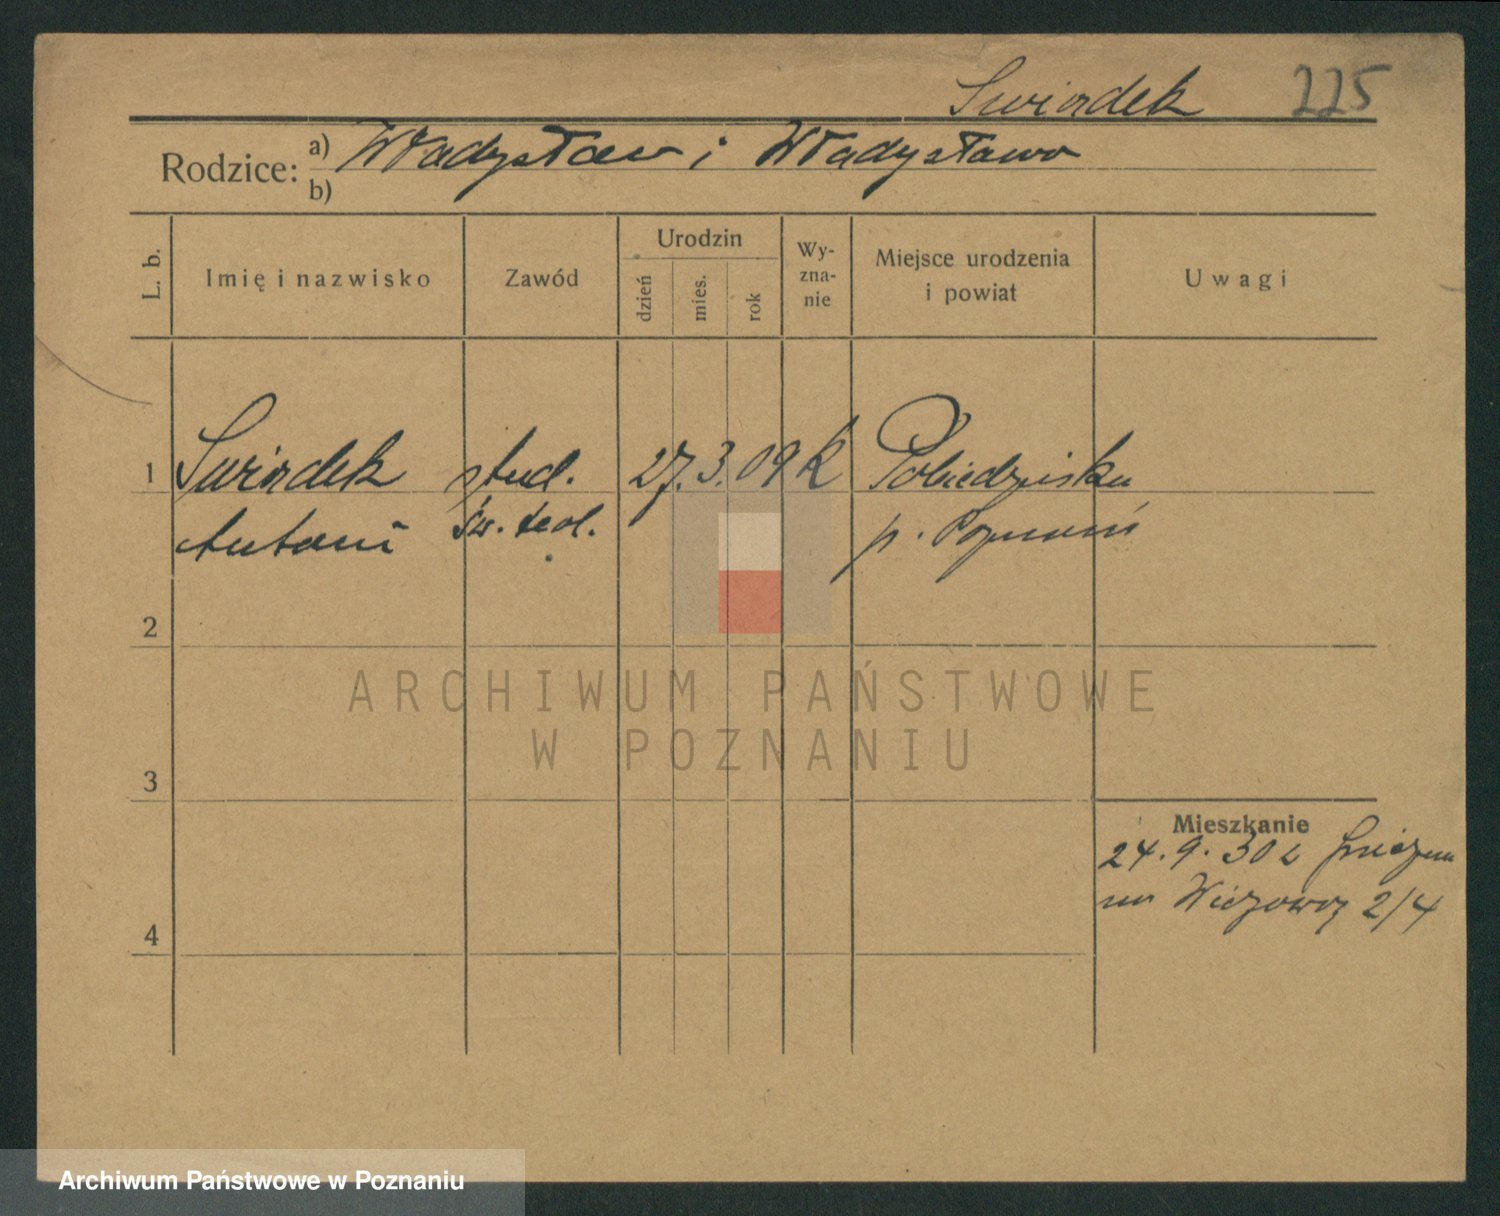 Swiadek 225
Rodzice: a) Władysław i Władysława
b)
L. b.
Imię i nazwisko
Zawód
Urodzin
dzień
mies.
rok
Wy-
zna-
nie
Miejsce urodzenia
i powiat
Uwagi
1 Swiadek stud. 27. 3. 09 k Pobiedziska
Antoni św. teol. p. Poznań
2
3
4
Mieszkanie
24. 9. 30 z Gniezna
na Wieżową 2/4
ARCHIWUM PAŃSTWOWE
W POZNANIU
Archiwum Państwowe w Poznaniu